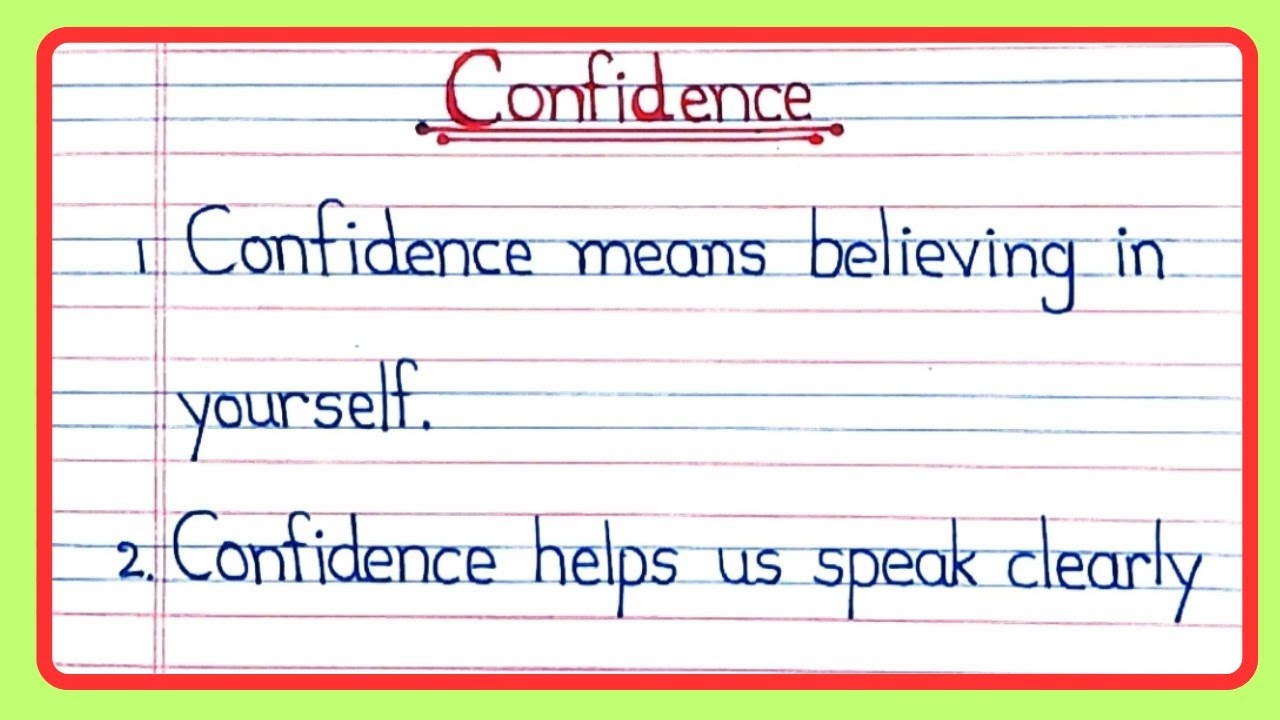 Confidence
1. Confidence means believing in
yourself.
2. Confidence helps us speak clearly